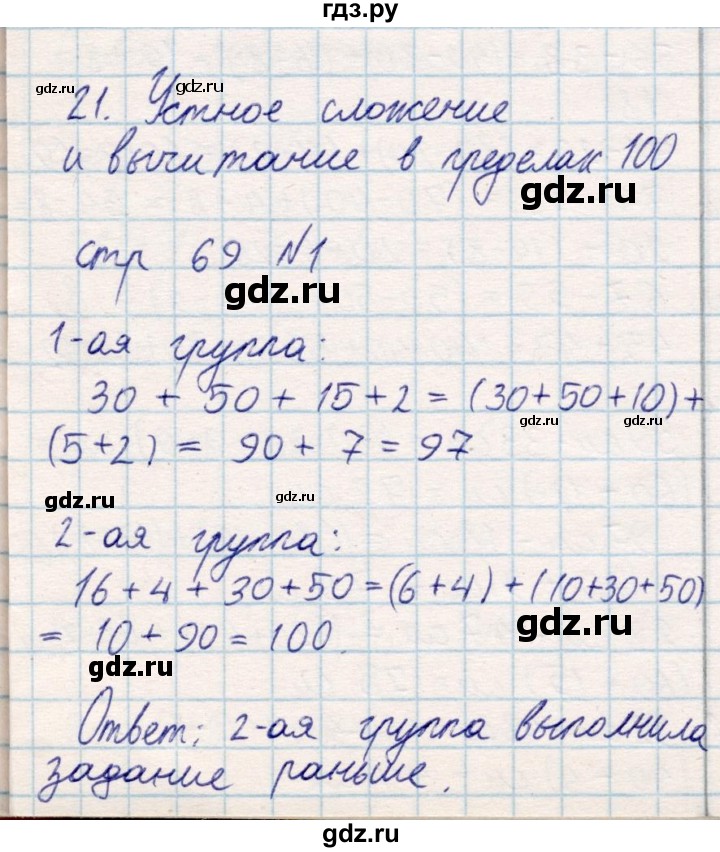 гдз.ру
21. Устное сложение
gdz.ru
gdz.ru
и вычитание в пределах 100
gdz.ru
стр 69 №1
gdz.ru
1-ая группа:
gdz.ru
30 + 50 + 15 + 2 = (30+50+10)+
gdz.ru
gdz.ru
(5+2) = 90 + 7 = 97
gdz.ru
gdz.ru
2-ая группа:
16 + 4 + 30 + 50 = (6+4) + (10+30+50)
gdz.ru
= 10 + 90 = 100.
gdz.ru
Ответ: 2-ая группа выполнила
задание раньше.
gdz.ru